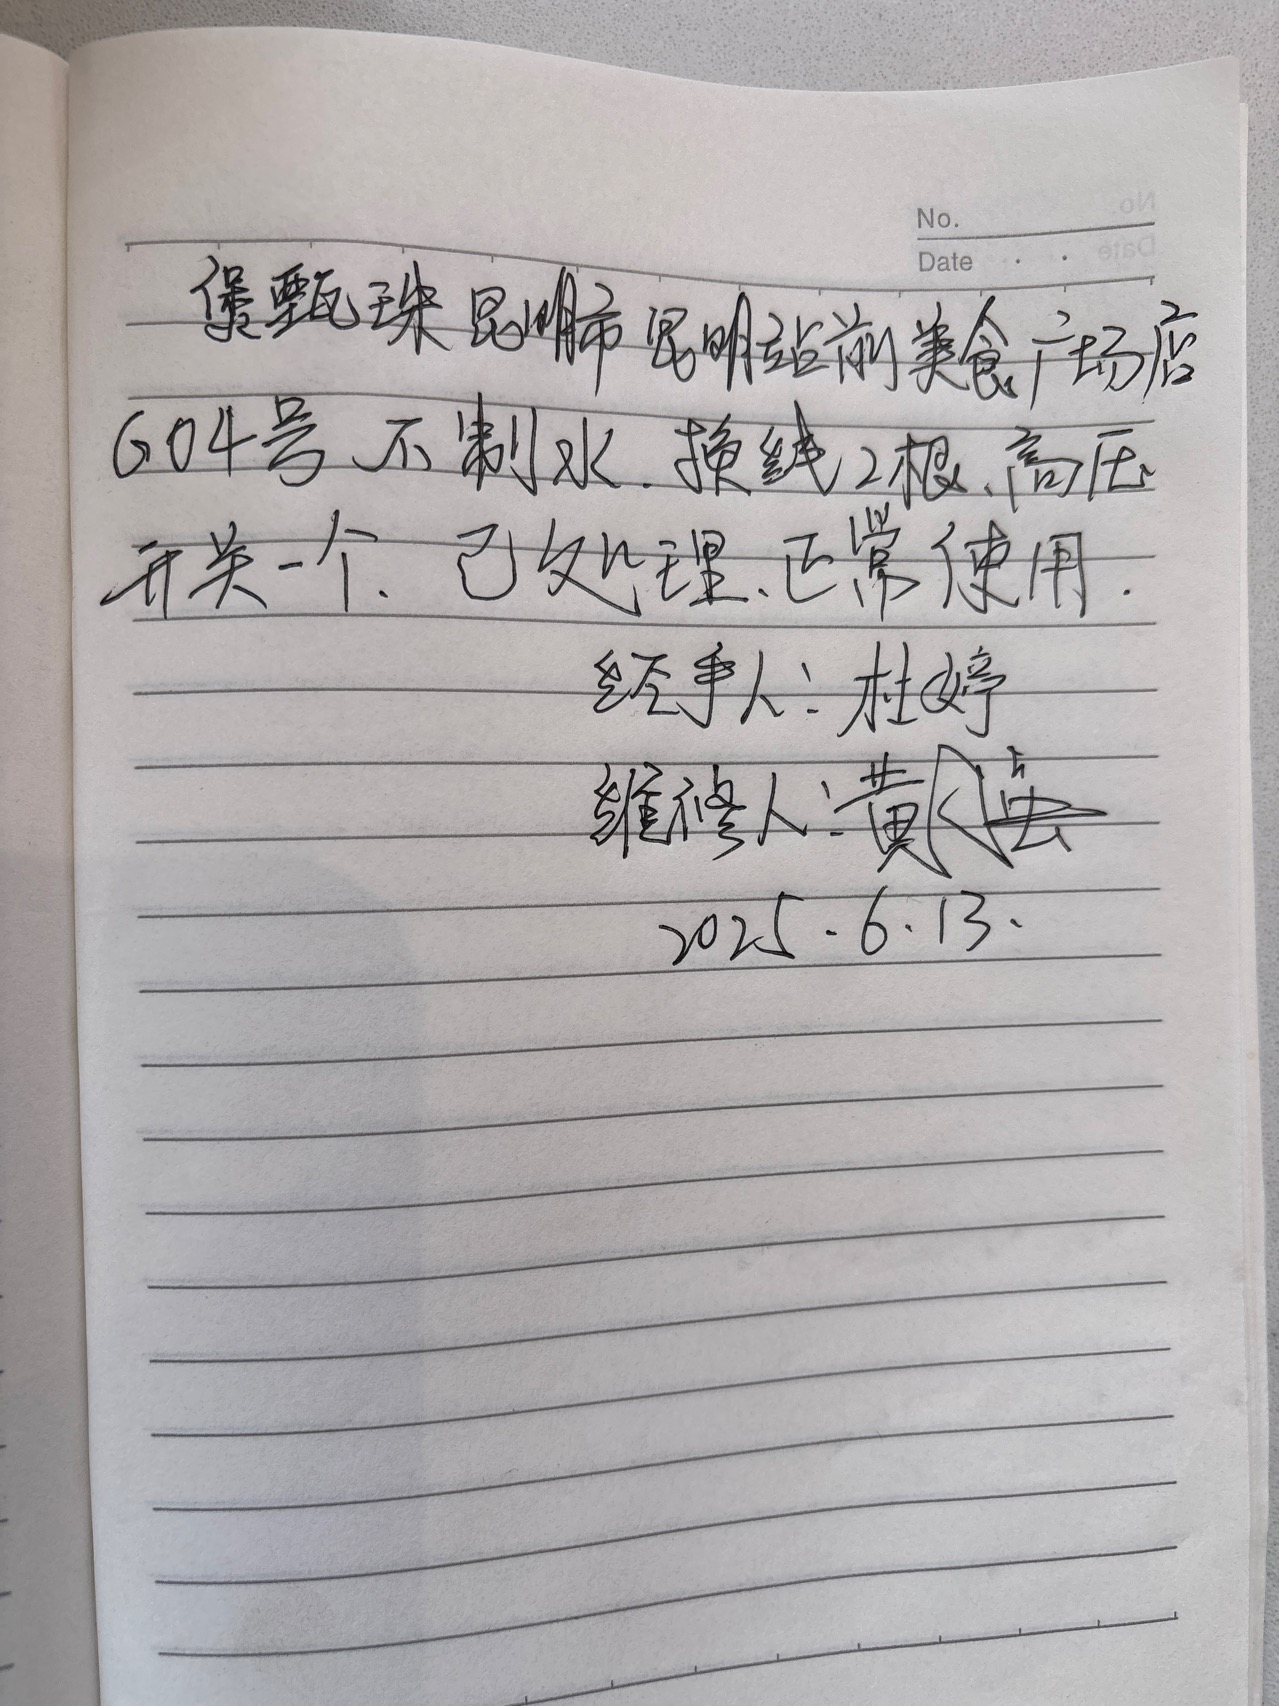 No.
Date
煲甄珠昆明市昆明站前美食广场店
G04号不制水.换线2根、高压
开关一个.已处理、正常使用.
经手人:杜婷
维修人:黄
2025.6.13.